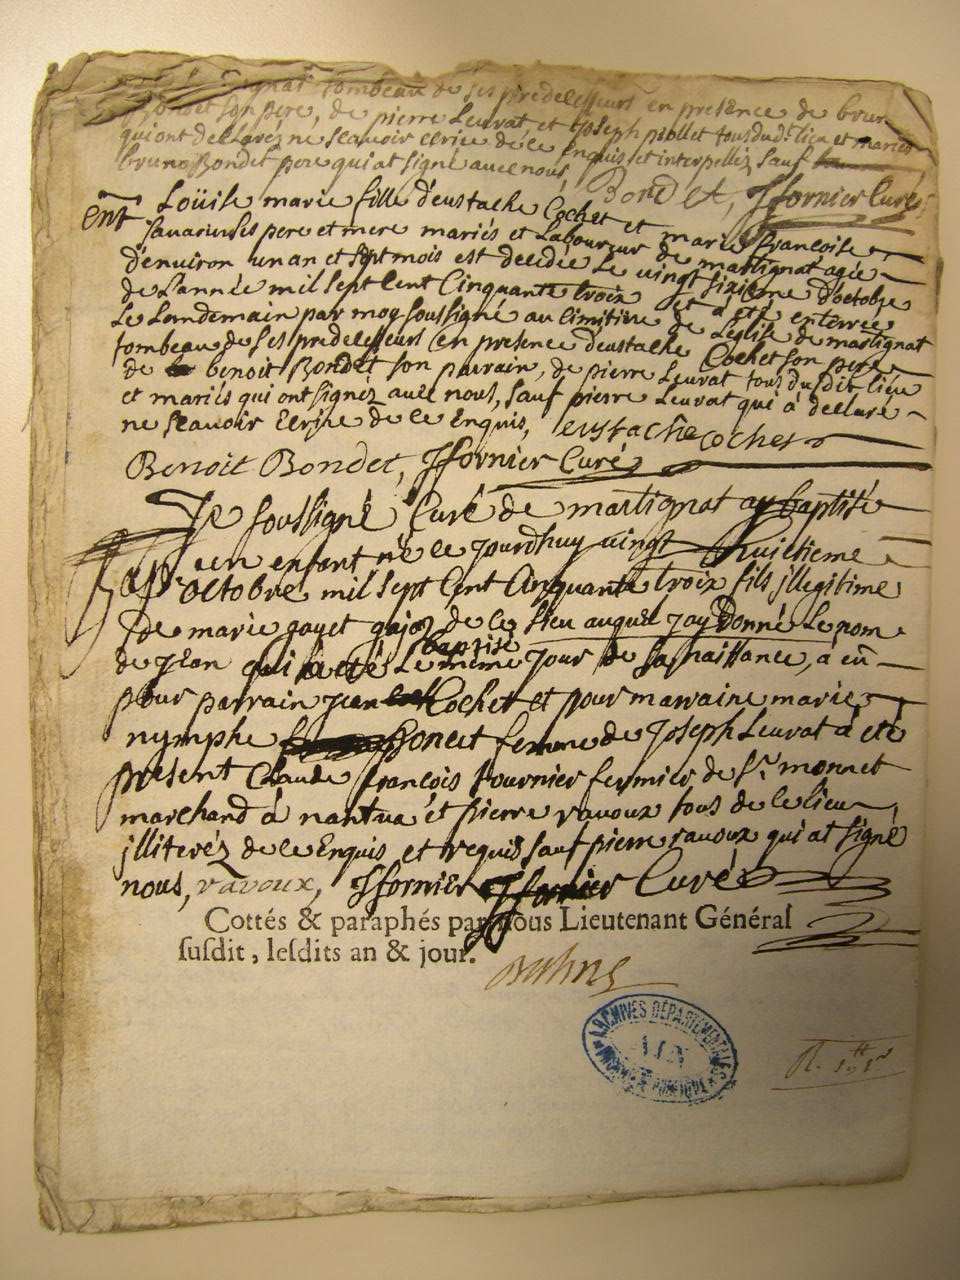 tombeau de ses predecesseurs en presence de brun
Bondet son pere, de pierre Leurat et Joseph pollet tous dud. lieu et mariés
qui ont declarez ne scavoir ecrire de ce enquis et interpellez sauf
bruno Bondet pere qui at signé avec nous, Bondet, Jfornier Curé
Ent Loüise marie fille d'eustache Cochet et marie francoise
Savarin ses pere et mere mariés et Laboureur de martignat agée
d'environ un an et sept mois est decedée le vingt sixieme d'octobre
de L'année mil sept Cent Cinquante troix et a été enterrée
Le Landemain par moy soussigné au cimitire de L'eglise de martignat
tombeau de ses predecesseurs en presence d'eustache Cochet son pere
de benoit Bondet son parrain, de pierre Leurat tous dudit lieu
et mariés qui ont signéz avec nous, sauf pierre Leurat qui á declaré
ne scavoir Ecrire de ce Enquis, eustache cochet
Benoit Bondet, Jfornier Curé
Je soussigné Curé de martignat ay baptisé
un enfant né ce jourdhuy vingt huictieme
Bap. d'octobre mil sept Cent Cinquante troix fils jllegitime
de marie gayet de ce lieu auquel jay Donné Le nom
de Jean qui a eté baptisé Le meme Jour de sa naissance, á eu
pour parrain jean Cochet et pour marraine marie
nymphe Boneit femme de Joseph Leurat á eté
présent Claude françois fournier fermier de Sr. monnet
marchand á nantua et pierre ravoux tous de ce lieu
jlliteréz de ce Enquis et requis sauf pierre ravoux qui at signé
nous, ravoux, Jfornier Jfornier Curé
Cottés & paraphés par nous Lieutenant Général
susdit, lesdits an & jour.
ARCHIVES DÉPARTEMENTALES
AIN